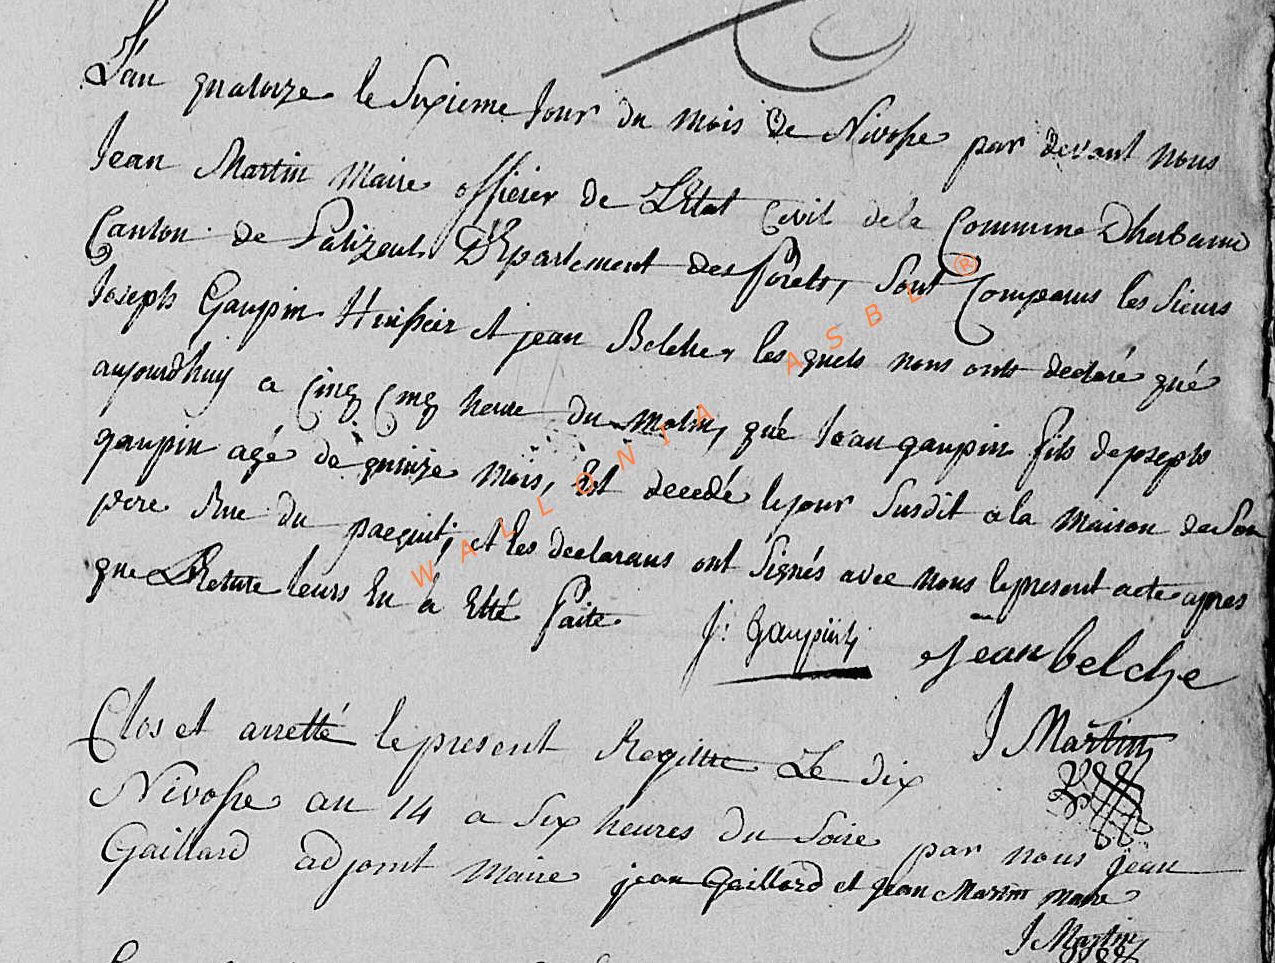 L'an quatorze le Sixieme Jour du mois de Nivose par devant nous
Jean Martin Maire officier de L'Etat Civil de la Commune Dhabaine
Canton de Paliseul Département des forets, sont Comparus les Sieurs
Joseph Gaupin Huissier et jean Belche, les quels nous ont declaré qué
aujourdhuy a Cinq Cinq heure du Matin, qué Jean gaupin fils de joseph
gaupin agé de quinze Mois, Est decedé le jour Susdit a la Maison de Son
pere Rue du paequit, et les declarans ont Signés avec nous le present acte apres
que LReture leurs En a Etté faite
J: Gaupin jean belche
J Martin
Clos et arretté le present Regittre Le dix
Nivose an 14 a Six heures du Soire par nous jean
Gaillard adjoint Maire jean Gaillard et jean Martin Mare
J Martin
WALLONIA ASBL ®